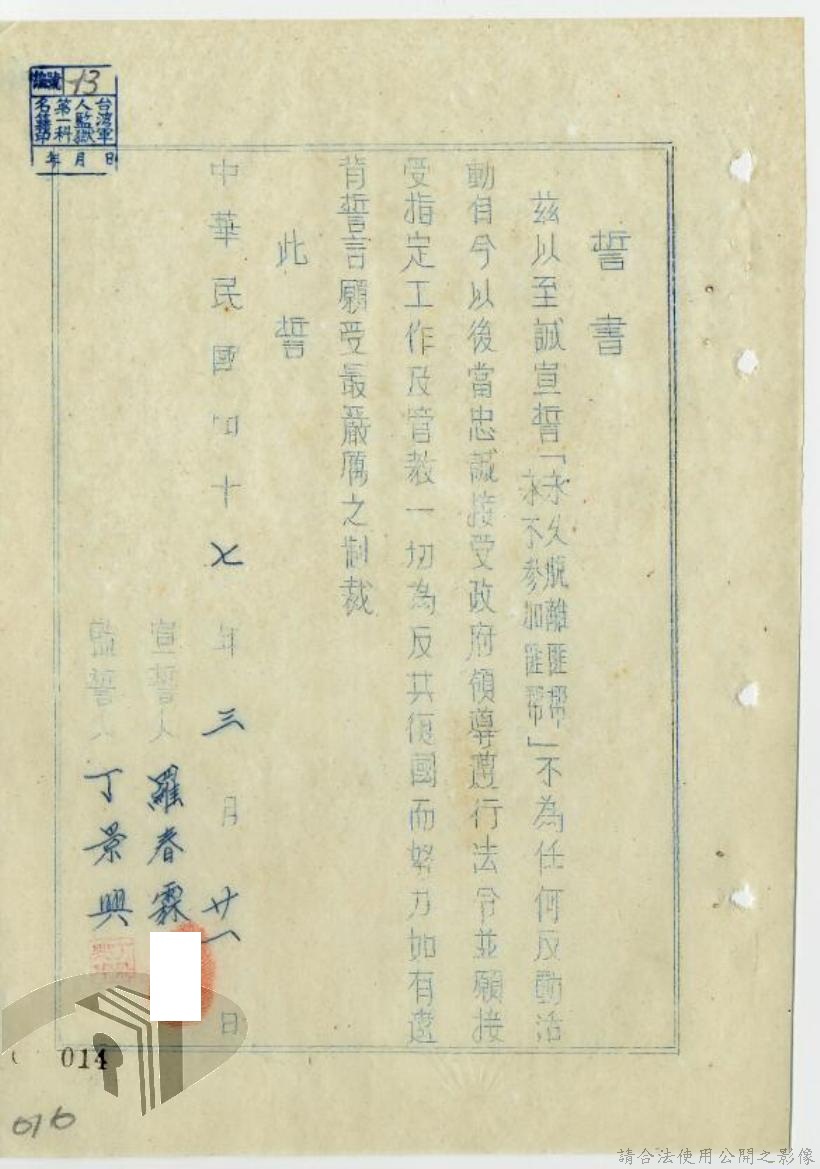 誓書
茲以至誠宣誓「永久脫離匪幫永不參加匪幫」不為任何反動活
動自今以後當忠誠接受政府領導遵行法令並願接
受指定工作及管教一切為反共復國而努力如有違
背誓言願受最嚴厲之制裁
此誓
中華民國四十七年三月廿一日
宣誓人 羅春霖
監誓人 丁景興
編號 13
台灣軍
人監獄
第一科
名籍印
年 月 日
014
016
請合法使用公開之影像